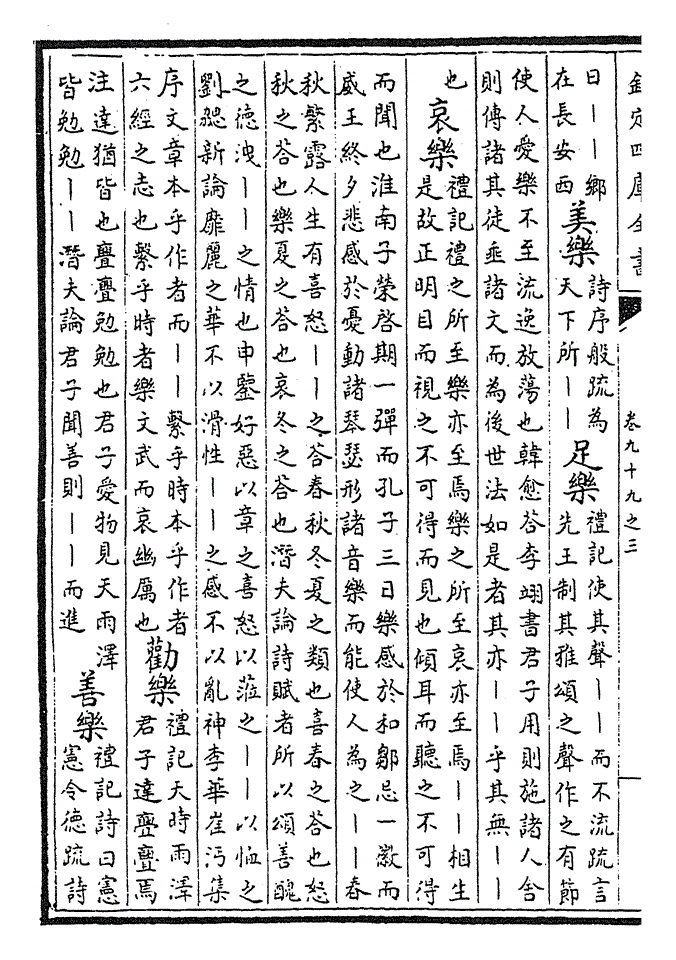 欽定四庫全書
卷九十九之三
曰——鄉
在長安西
美樂
詩序般疏為
天下所——
足樂
禮記使其聲——而不流疏言
先王制其雅頌之聲作之有節
使人愛樂不至流逸放蕩也韓愈荅李翊書君子用則施諸人舍
則傳諸其徒垂諸文而為後世法如是者其亦——乎其無——
也
哀樂
禮記禮之所至樂亦至焉樂之所至哀亦至焉——相生
是故正明目而視之不可得而見也傾耳而聽之不可得
而聞也淮南子榮啓期一彈而孔子三日樂感於和鄒忌一徽而
威王終夕悲感於憂動諸琴瑟形諸音樂而能使人為之——春
秋繁露人生有喜怒——之荅春秋冬夏之類也喜春之荅也怒
秋之荅也樂夏之荅也哀冬之荅也潛夫論詩賦者所以頌善醜
之德洩——之情也申鑒好惡以章之喜怒以蒞之——以恤之
劉勰新論靡麗之華不以滑性——之感不以亂神李華崔沔集
序文章本乎作者而——繫乎時本乎作者
六經之志也繫乎時者樂文武而哀幽厲也
勸樂
禮記天時雨澤
君子達亹亹焉
注達猶皆也亹亹勉勉也君子愛物見天雨澤
皆勉勉——潛夫論君子聞善則——而進
善樂
禮記詩曰憲
憲令德疏詩